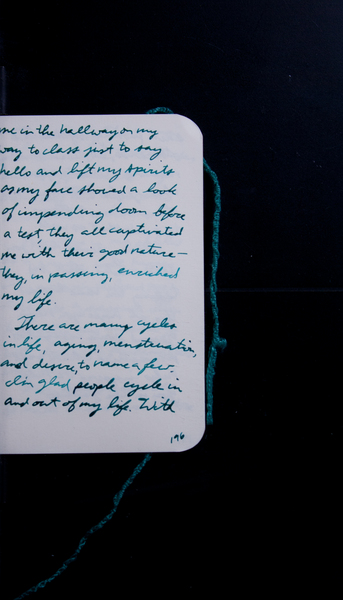 me in the hallway on my
way to class just to say
hello and lift my spirits
as my face showed a look
of impending doom before
a test, they all captivated
me with their good nature–
they, in passing, enriched
my life.
There are many cycles
in life, aging, menstruation,
and desire, to name a few.
I'm glad people cycle in
and out of my life. With
196